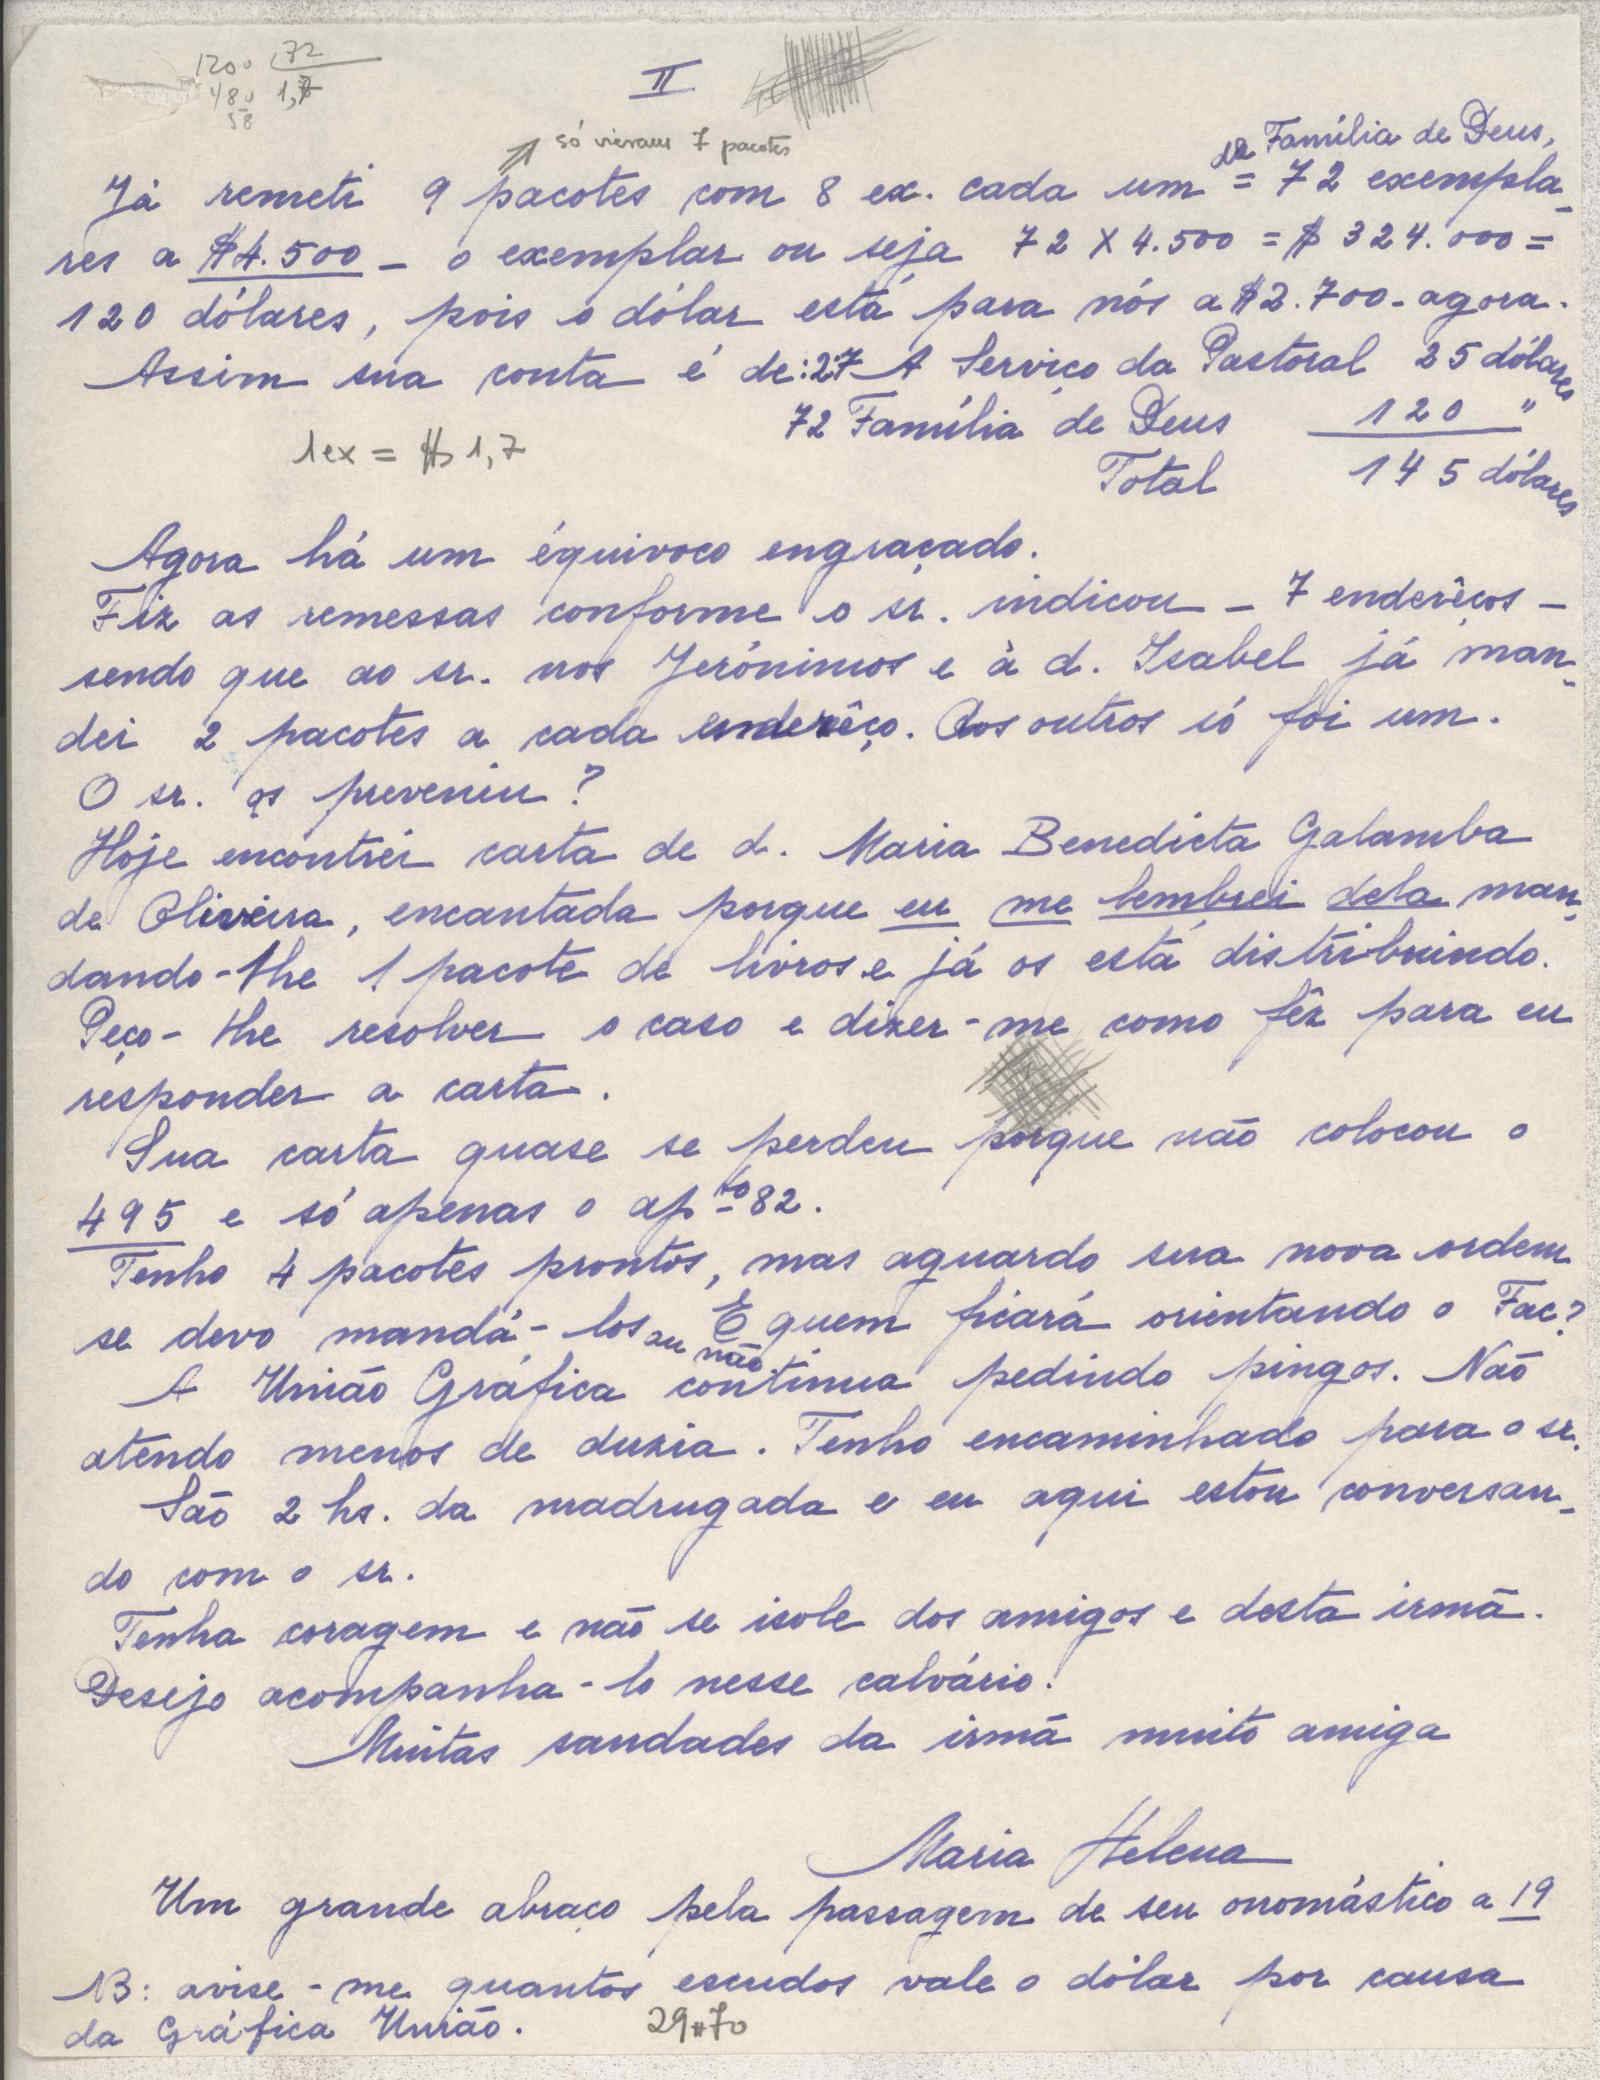 1200 72
480 1,7
58
II
só vieram 7 pacotes
da Família de Deus,
Já remeti 9 pacotes com 8 ex. cada um = 72 exempla-
res a $4.500 - o exemplar ou seja 72 X 4.500 = $ 324.000 =
120 dólares, pois o dólar está para nós a $2.700 - agora.
Assim sua conta é de: 27 A Serviço da Pastoral 25 dólares
72 Família de Deus 120 "
1 ex = $ 1,7
Total 145 dólares
Agora há um équivoco engraçado.
Fiz as remessas conforme o sr. indicou - 7 enderêços -
sendo que ao sr. nos Jerónimos e à d. Isabel já man-
dei 2 pacotes a cada enderêço. Aos outros só foi um.
O sr. os preveniu?
Hoje encontrei carta de d. Maria Benedicta Galamba
de Oliveira, encantada porque eu me lembrei dela man-
dando-lhe 1 pacote de livros e já os está distribuindo.
Peço-lhe resolver o caso e dizer-me como fêz para eu
responder a carta.
Sua carta quase se perdeu porque não colocou o
495 e só apenas o apto 82.
Tenho 4 pacotes prontos, mas aguardo sua nova ordem
se devo mandá-los ou não. E quem ficará orientando o Fac?
A União Gráfica continua pedindo pingos. Não
atendo menos de duzia. Tenho encaminhado para o sr.
São 2 hs. da madrugada e eu aqui estou conversan-
do com o sr.
Tenha coragem e não se isole dos amigos e desta irmã.
Desejo acompanha-lo nesse calvário!
Muitas saudades da irmã muito amiga
Maria Helena
Um grande abraço pela passagem de seu onomástico a 19
NB: avise-me quantos escudos vale o dólar por causa
da Gráfica União. 29$70